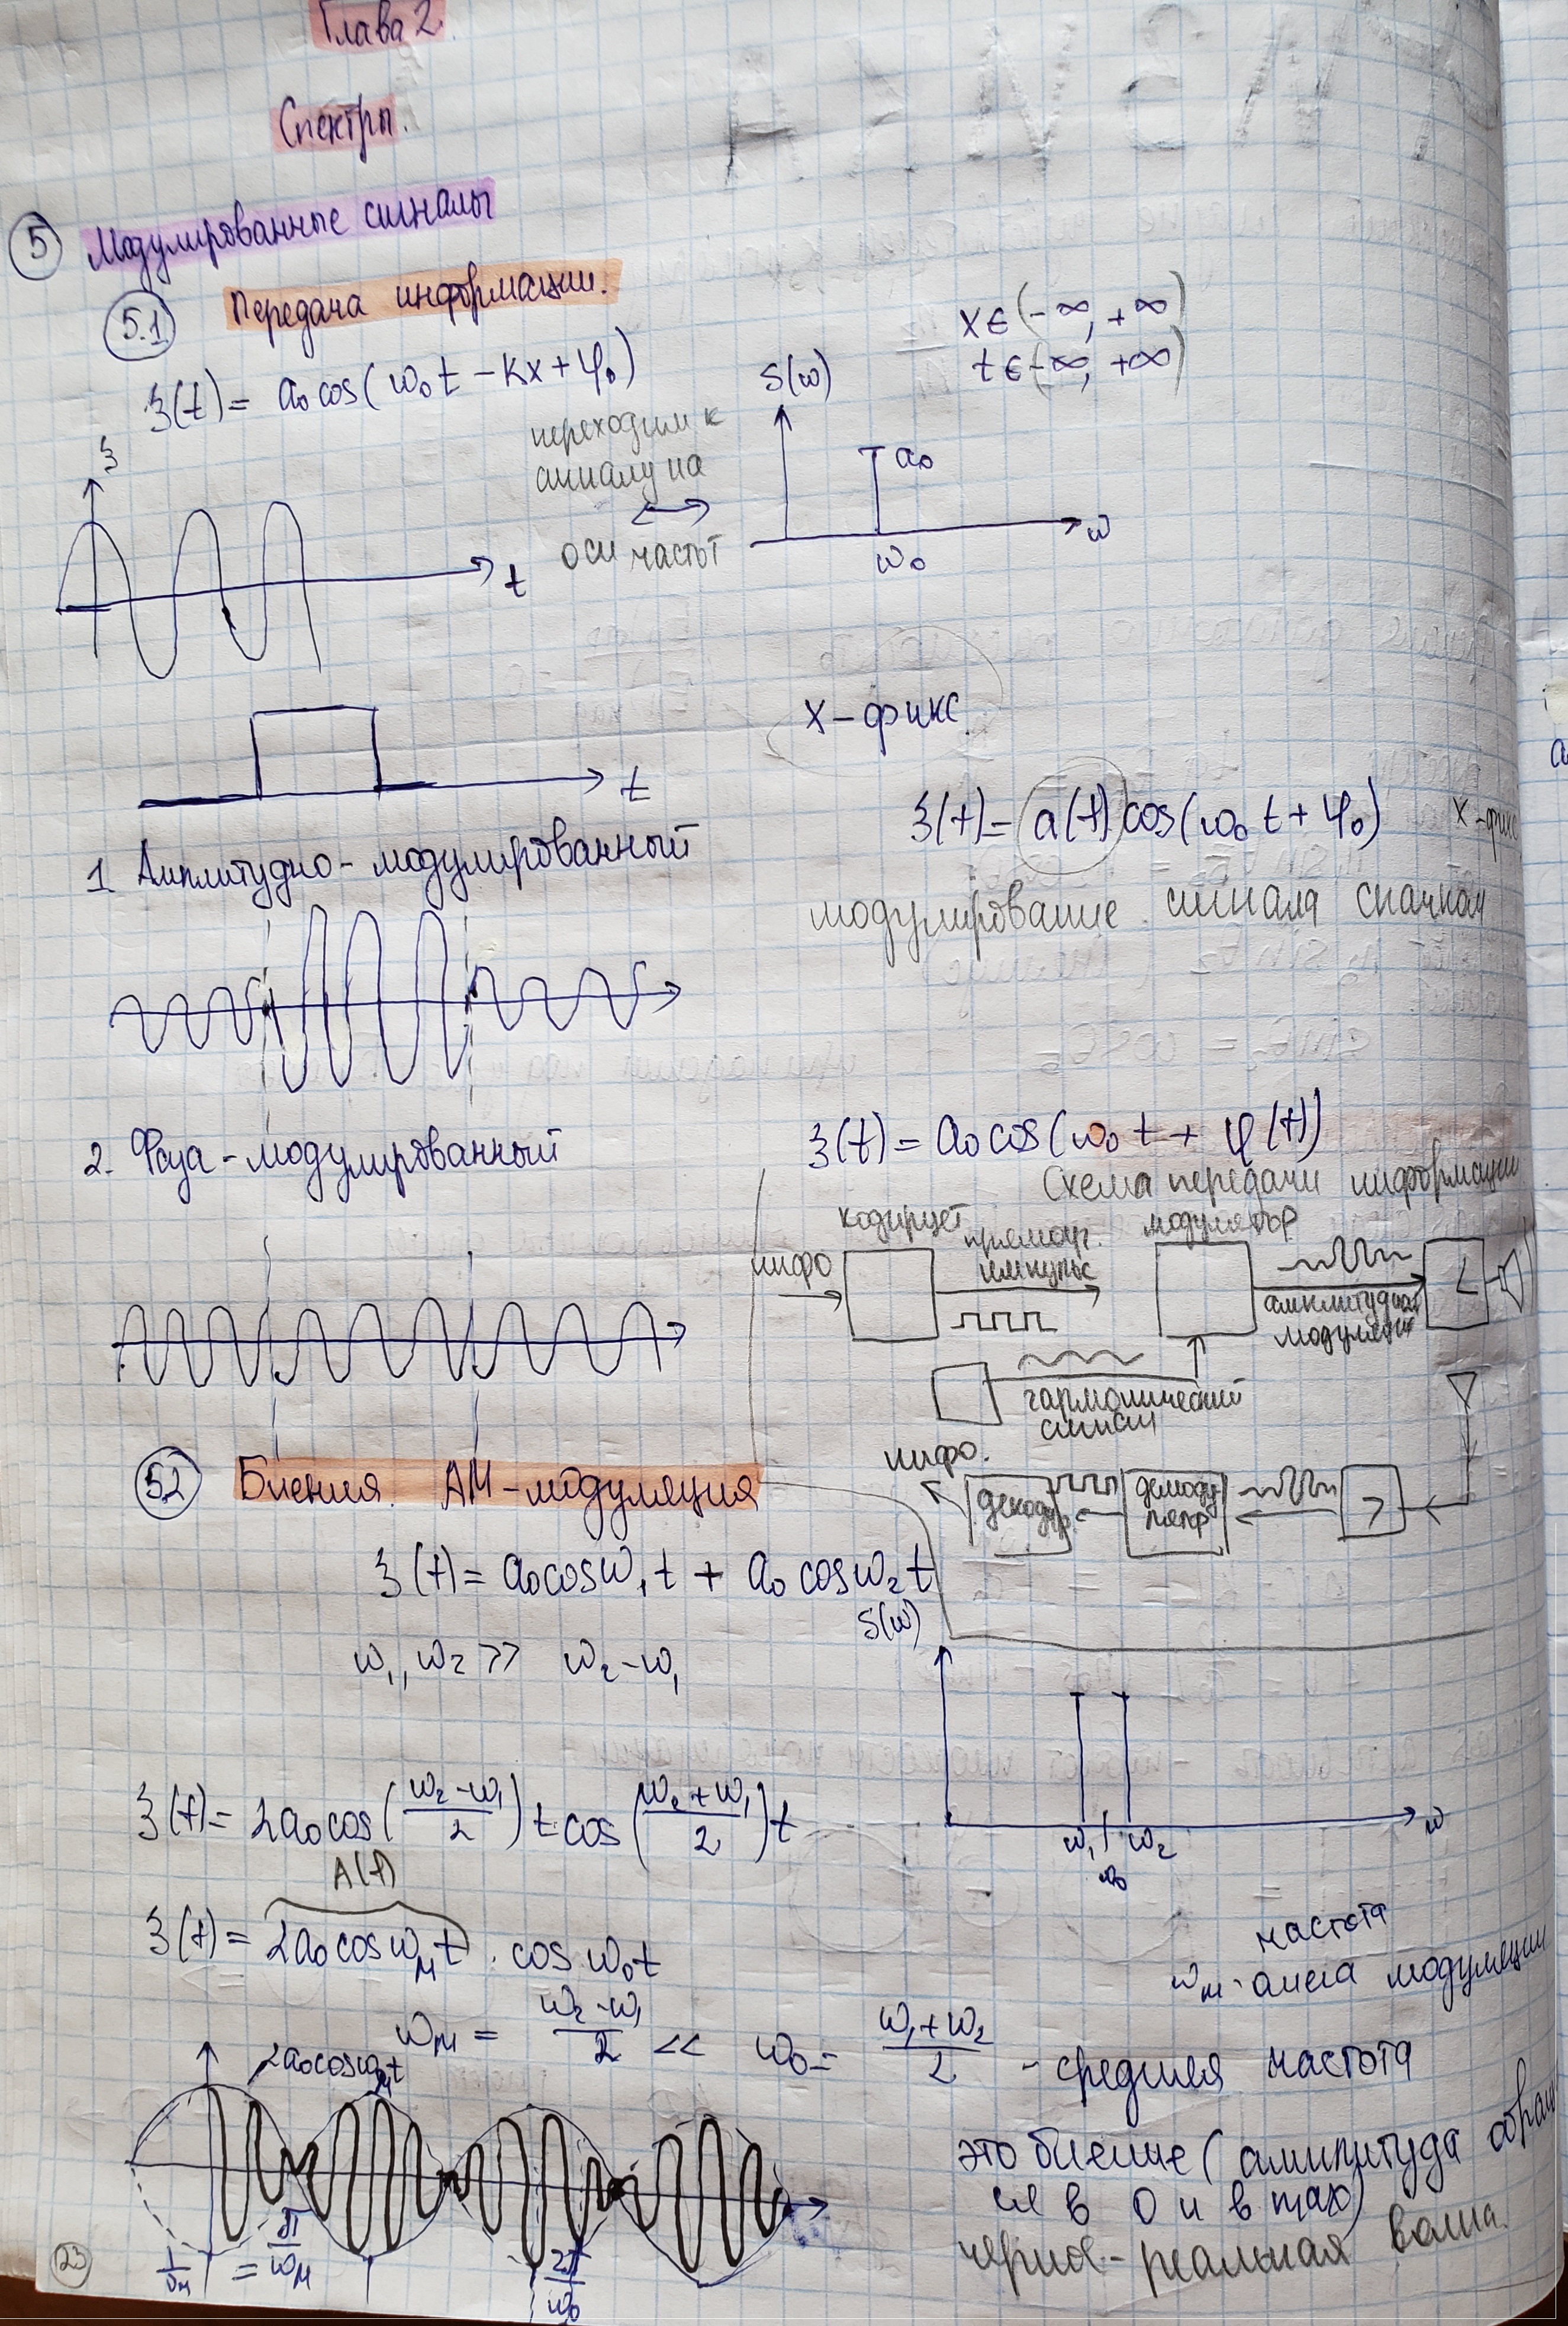 Глава 2.
Спектры.
5 Модулированные сигналы
5.1 Передача информации.
x ∈ (-∞, +∞)
t ∈ (-∞, +∞)
ξ(t) = a₀ cos(ω₀t - kx + φ₀)
переходим к
сигналу на
↔
оси частот
ξ
t
S(ω)
a₀
ω₀
ω
x - фикс.
t
1. Амплитудно-модулированный
ξ(t) = a(t) cos(ω₀t + φ₀) x-фикс
модулирование сигнала скачком
2. Фаза-модулированный
ξ(t) = a₀ cos(ω₀t + φ(t))
Схема передачи информации
инфо
кодирует
прямоуг.
импульс
модулятор
амплитудная
модуляция
гармонический
сигнал
инфо.
декодир.
демоду
лятор
5.2 Биения. АМ-модуляция
ξ(t) = a₀cosω₁t + a₀cosω₂t
ω₁, ω₂ >> ω₂-ω₁
S(ω)
ω₁ ω₂
ω₀
ω
ξ(t) = 2a₀cos((ω₂-ω₁)/2)t·cos((ω₂+ω₁)/2)t
A(t)
ξ(t) = 2a₀cosωмt · cosω₀t
частота
ωм - омега модуляции
ωм = (ω₂-ω₁)/2 << ω₀ = (ω₁+ω₂)/2 - средняя частота
2a₀cosωмt
это биение (амплитуда
ся в 0 и в max)
черное - реальная волна.
= 2π/ωм
2π/ω₀
23